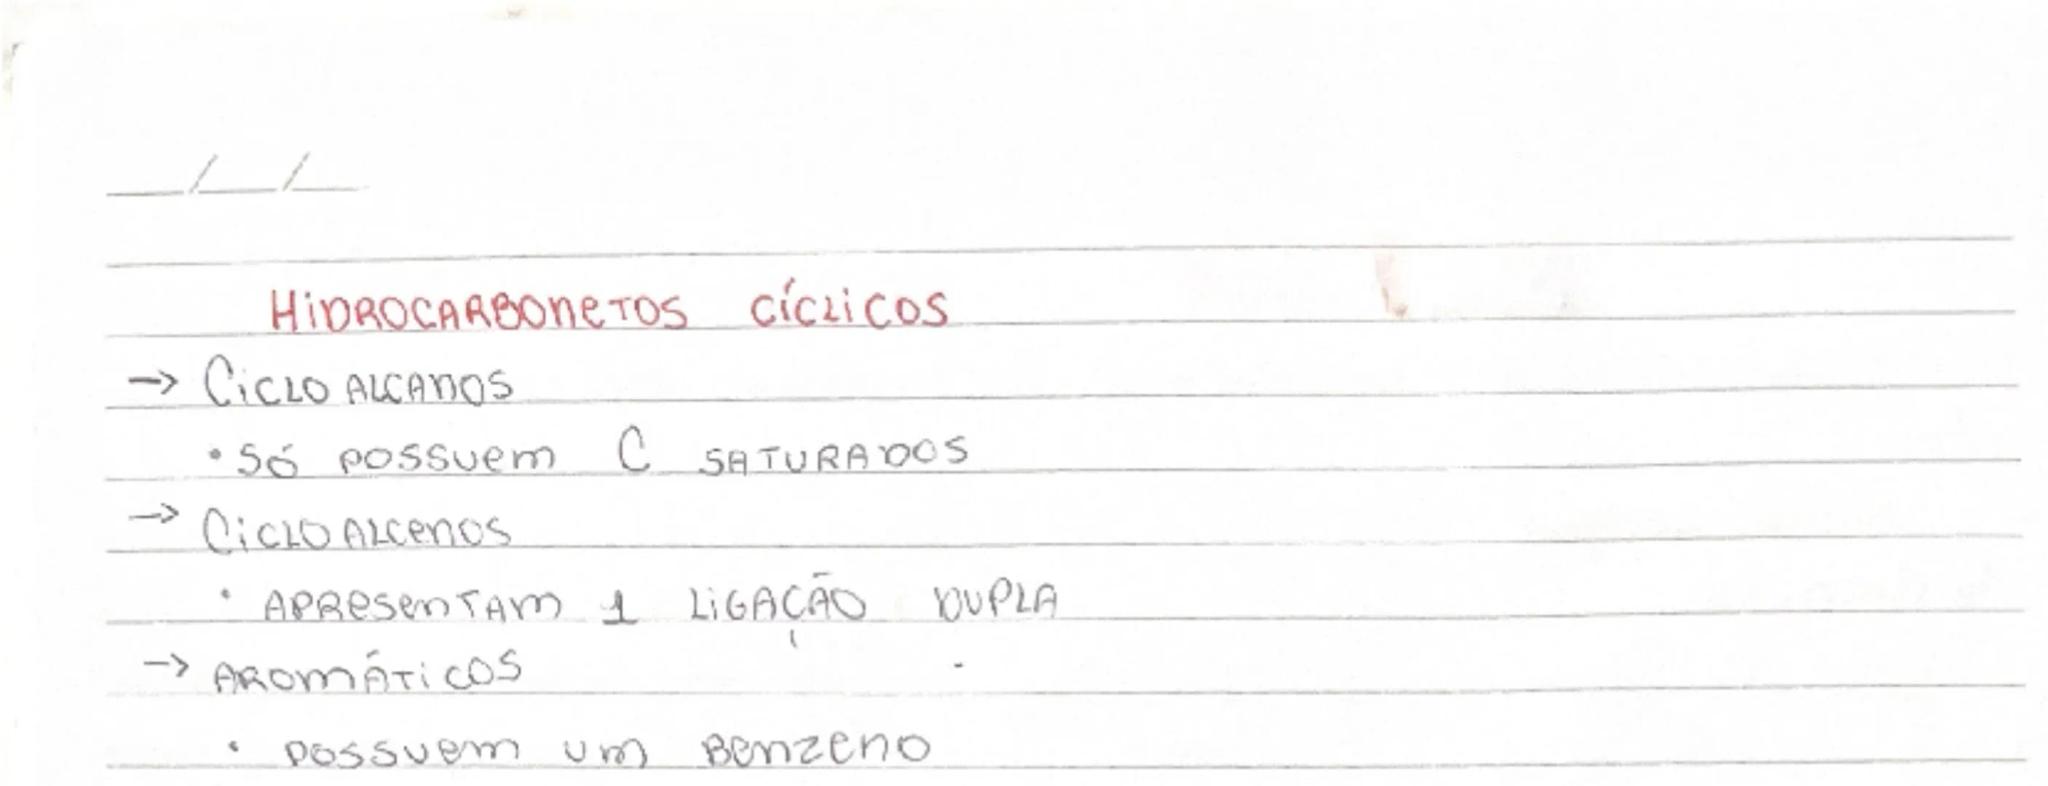 HIDROCARBONETOS CÍCLICOS
→ CICLO ALCANOS
• SÓ POSSUEM C SATURADOS
→ CICLO ALCENOS
• APRESENTAM 1 LIGAÇÃO DUPLA
→ AROMÁTICOS
• POSSUEM UM BENZENO